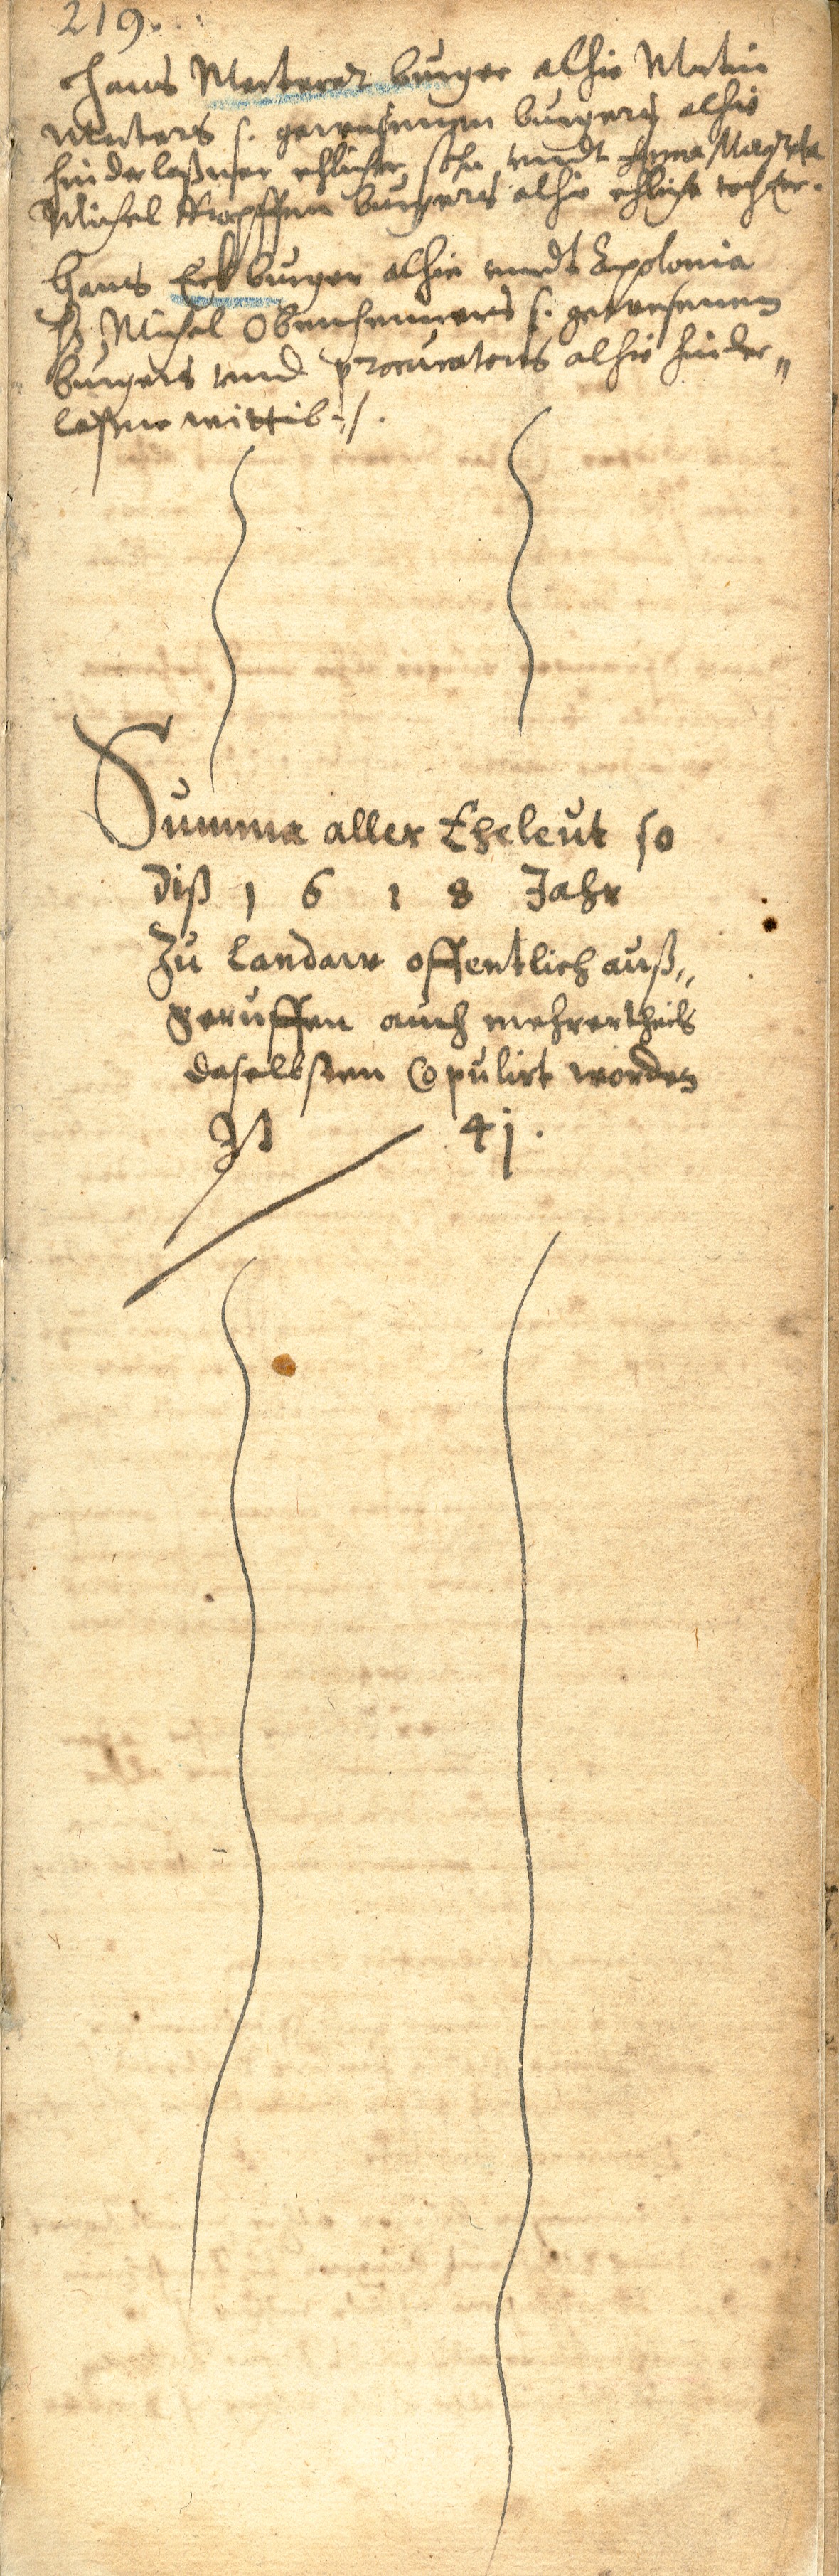 219.
Hans Meterer burger alhie Mertin
Meters s. gewesenen burgers alhie
hinderlaßner ehlicher sohn undt Anna Magreta
Michel Kropffen burgers alhie ehlihe tochter.
Hans Eck burger alhie undt Apolonia
H. Michel Obenheimers s. gewesenen
burgers und procurators alhie hinder„
laßne wittib./.
Summa aller Eheleut so
diß 1 6 1 8 Jahr
Zu Landaw offentlich auß„
geruffen auch mehrertheils
daselbsten Copulirt worden
Ist 4j.